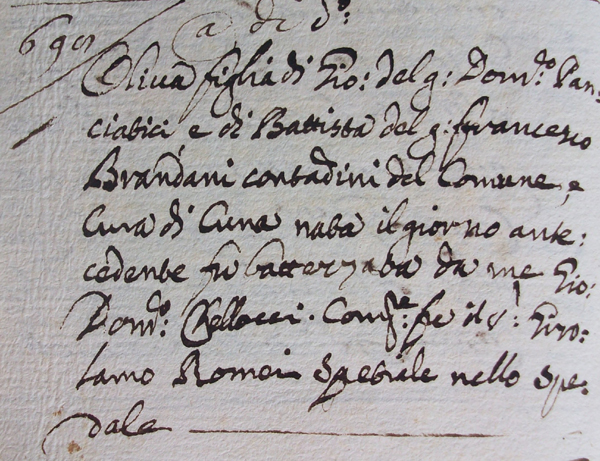 A dì d.º
698
Oliva figlia di Gio: del q: Dom.co Pan:
ciatici, e di Battista del q: Francesco
Brandani contadini del Comune, e
Cura di Cuna nata il giorno ante:
cedente fu batterzata da me Gio:
Dom.co Bellocci. Com.re fu il S.r Giro:
lamo Romei Speziale nello Spe:
dale